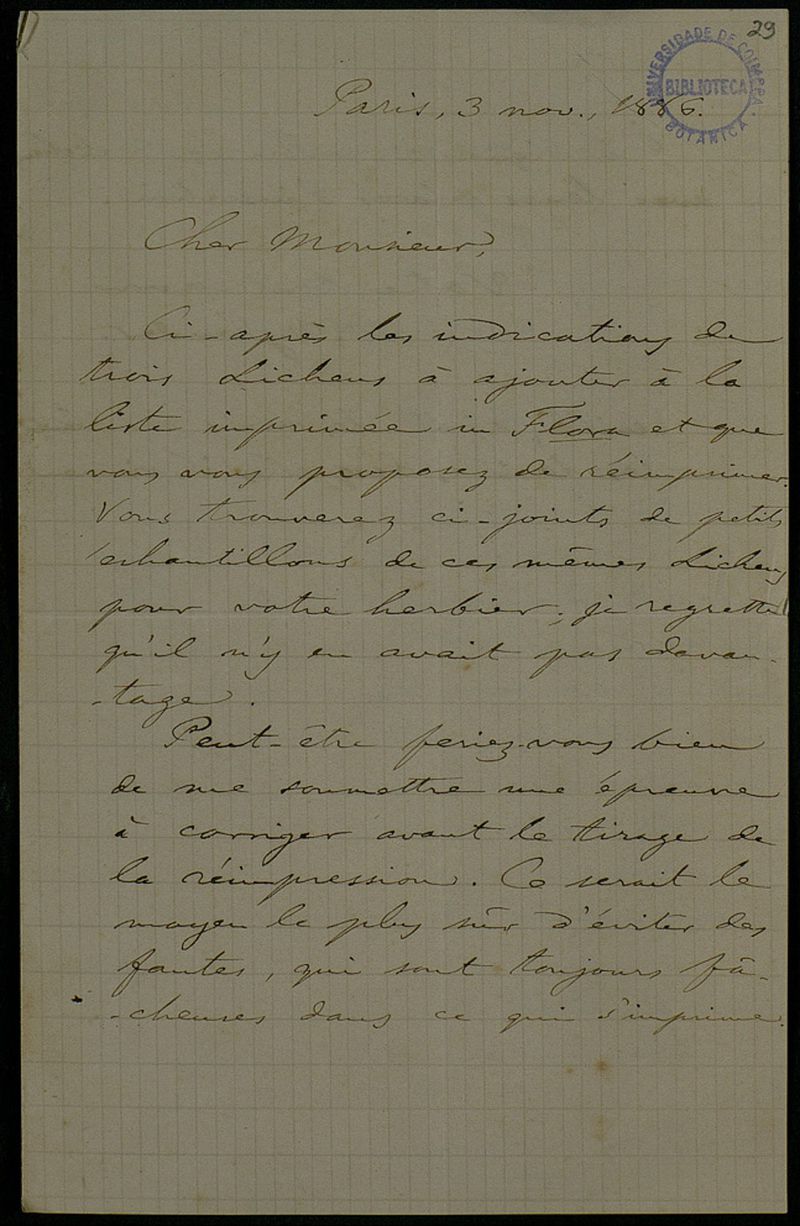 29
UNIVERSIDADE DE COIMBRA
BIBLIOTECA
BOTANICA
Paris, 3 nov., 1886.
Cher Monsieur,
Ci-après les indications de
trois Lichens à ajouter à la
liste imprimée in Flora et que
vous vous proposez de réimprimer.
Vous trouverez ci-joints de petits
échantillons de ces mêmes Lichens
pour votre herbier; je regrette
qu'il n'y en avait pas davan-
-tage.
Peut-être feriez-vous bien
de me soumettre une épreuve
à corriger avant le tirage de
la réimpression. Ce serait le
moyen le plus sûr d'éviter des
fautes, qui sont toujours fâ-
-cheuses dans ce qui s'imprime.